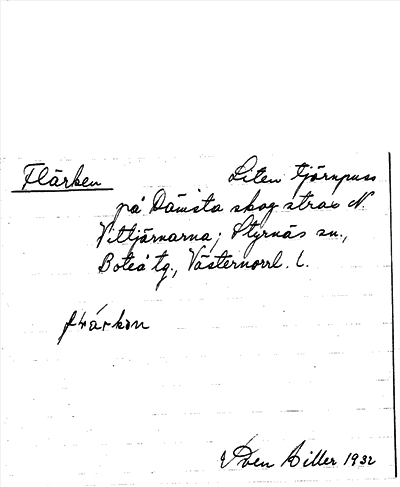 Flärken Liten tjärnpuss
på Dämsta skog strax N.
Vittjärnarna; Styrnäs sn.,
Boteå tg., Västernorrl. l.
flärkən
Sven Hiller 1932